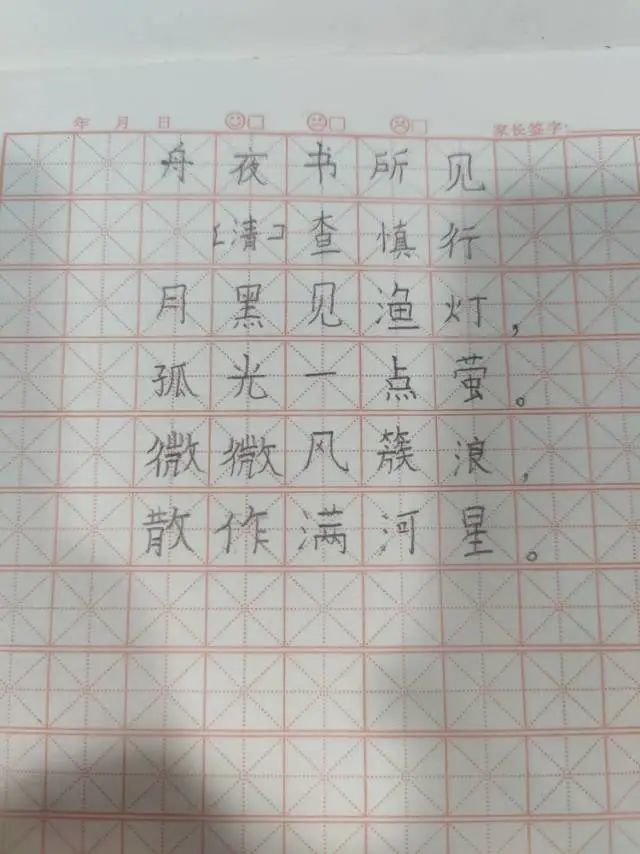 年 月 日 □ □ □ 家长签字:
舟夜书所见
[清]查慎行
月黑见渔灯，
孤光一点萤。
微微风簇浪，
散作满河星。